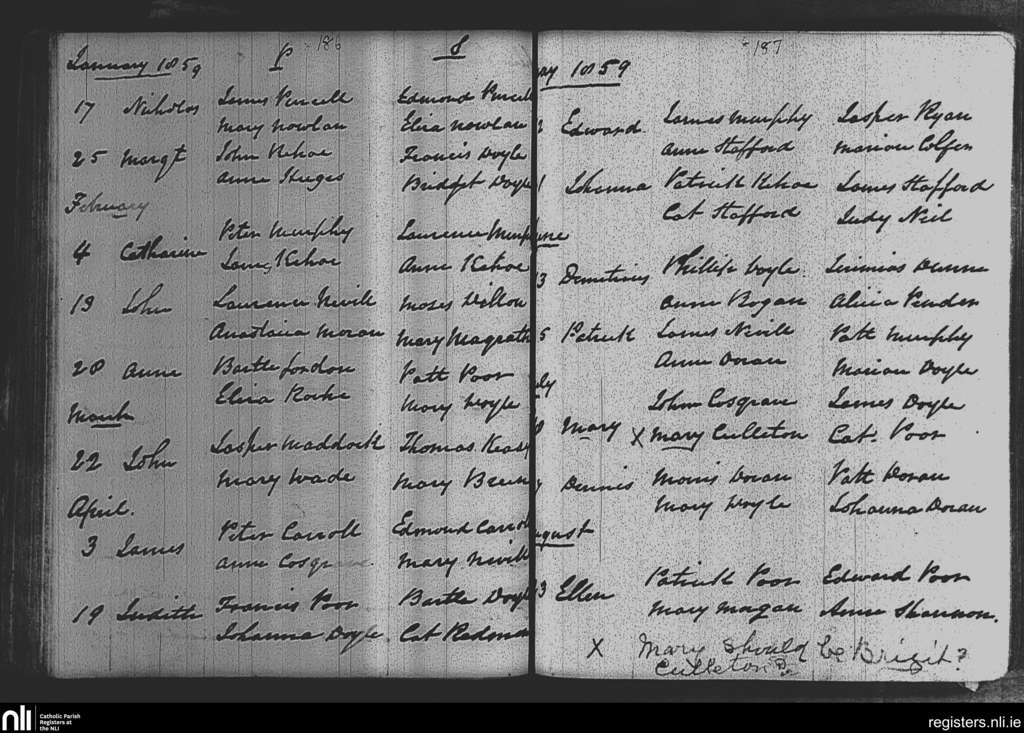 186
January 1859 P S
17 Nicholas James Purcell Edmond Purcell
Mary Nowlan Eliza Nowlan
25 Margt John Kehoe Francis Doyle
Anne Hughes Bridget Doyle
February
4 Catharine Peter Murphy Laurence Murphy
Kehoe Anne Kehoe
13 John Laurence Nevill Moses Dillon
Anastacia Moran Mary Magrath
28 Anne Bartle London Patt Poor
Eliza Roche Mary Doyle
March
22 John Jasper Maddock Thomas
Mary Wade Mary
April.
3 James Peter Carroll Edmond Carroll
Anne Cosgrave Mary Nevill
19 Judith Francis Poor Bartle Doyle
Johanna Doyle Cat Redmond
187
ary 1859
Edward James Murphy Jasper Ryan
Anne Stafford Marion Colfer
1 Johanna Patrick Kehoe James Stafford
Cat Stafford Judy Neil
une
3 Demetrius Phillip Doyle Dunne
Anne Bogan Alicia
5 Patrick James Nevill Patt Murphy
Anne Doran Marian Doyle
uly
John Cosgrave James Doyle
Mary X Mary Culleton Cat. Poor
Dennis Morris Doran Patt Doran
Mary Doyle Johanna Doran
ugust
3 Ellen Patrick Poor Edward Poor
Mary Morgan Anne Shannon.
X Mary should be Brigit?
Culleton
nli Catholic Parish
Registers at
the NLI
registers.nli.ie